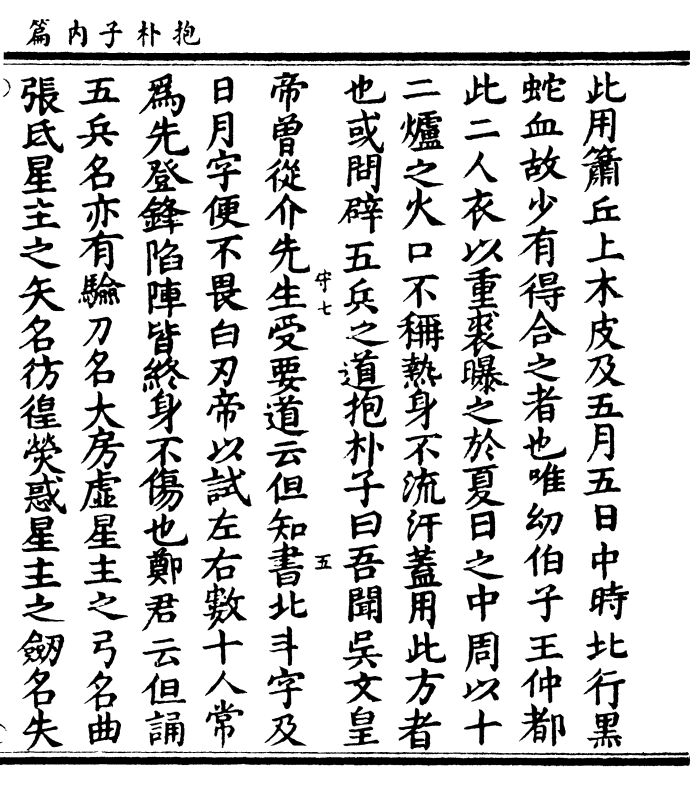 抱朴子内篇
此用簫丘上木皮及五月五日中時北行黑
蛇血故少有得合之者也唯幼伯子王仲都
此二人衣以重裘曝之於夏日之中周以十
二爐之火口不稱熱身不流汗蓋用此方者
也或問辟五兵之道抱朴子曰吾聞吳文皇
守七
五
帝曾從介先生受要道云但知書北斗字及
日月字便不畏白刃帝以試左右數十人常
爲先登鋒陷陣皆終身不傷也鄭君云但誦
五兵名亦有驗刀名大房虛星主之弓名曲
張氐星主之矢名彷徨熒惑星主之劒名失